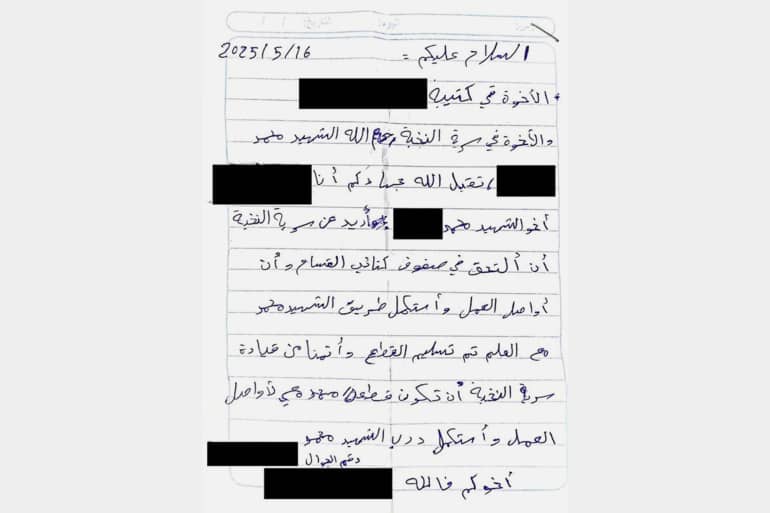 السلام عليكم = 2025/5/16
الأخوة في كتيبة
والأخوة في سرية النخبة رحم الله الشهيد محمد
/ تقبل الله جهادكم أنا
أخو الشهيد محمد أريد من سرية النخبة
أن ألتحق في صفوف كتائب القسام وأن
أواصل العمل وأستكمل طريق الشهيد محمد
مع العلم تم تسليم القطع وأتمنا من قيادة
سرية النخبة أن تكون قطعة محمد معي لأواصل
العمل وأستكمل درب الشهيد محمد
رقم الجوال
أخوكم فالله